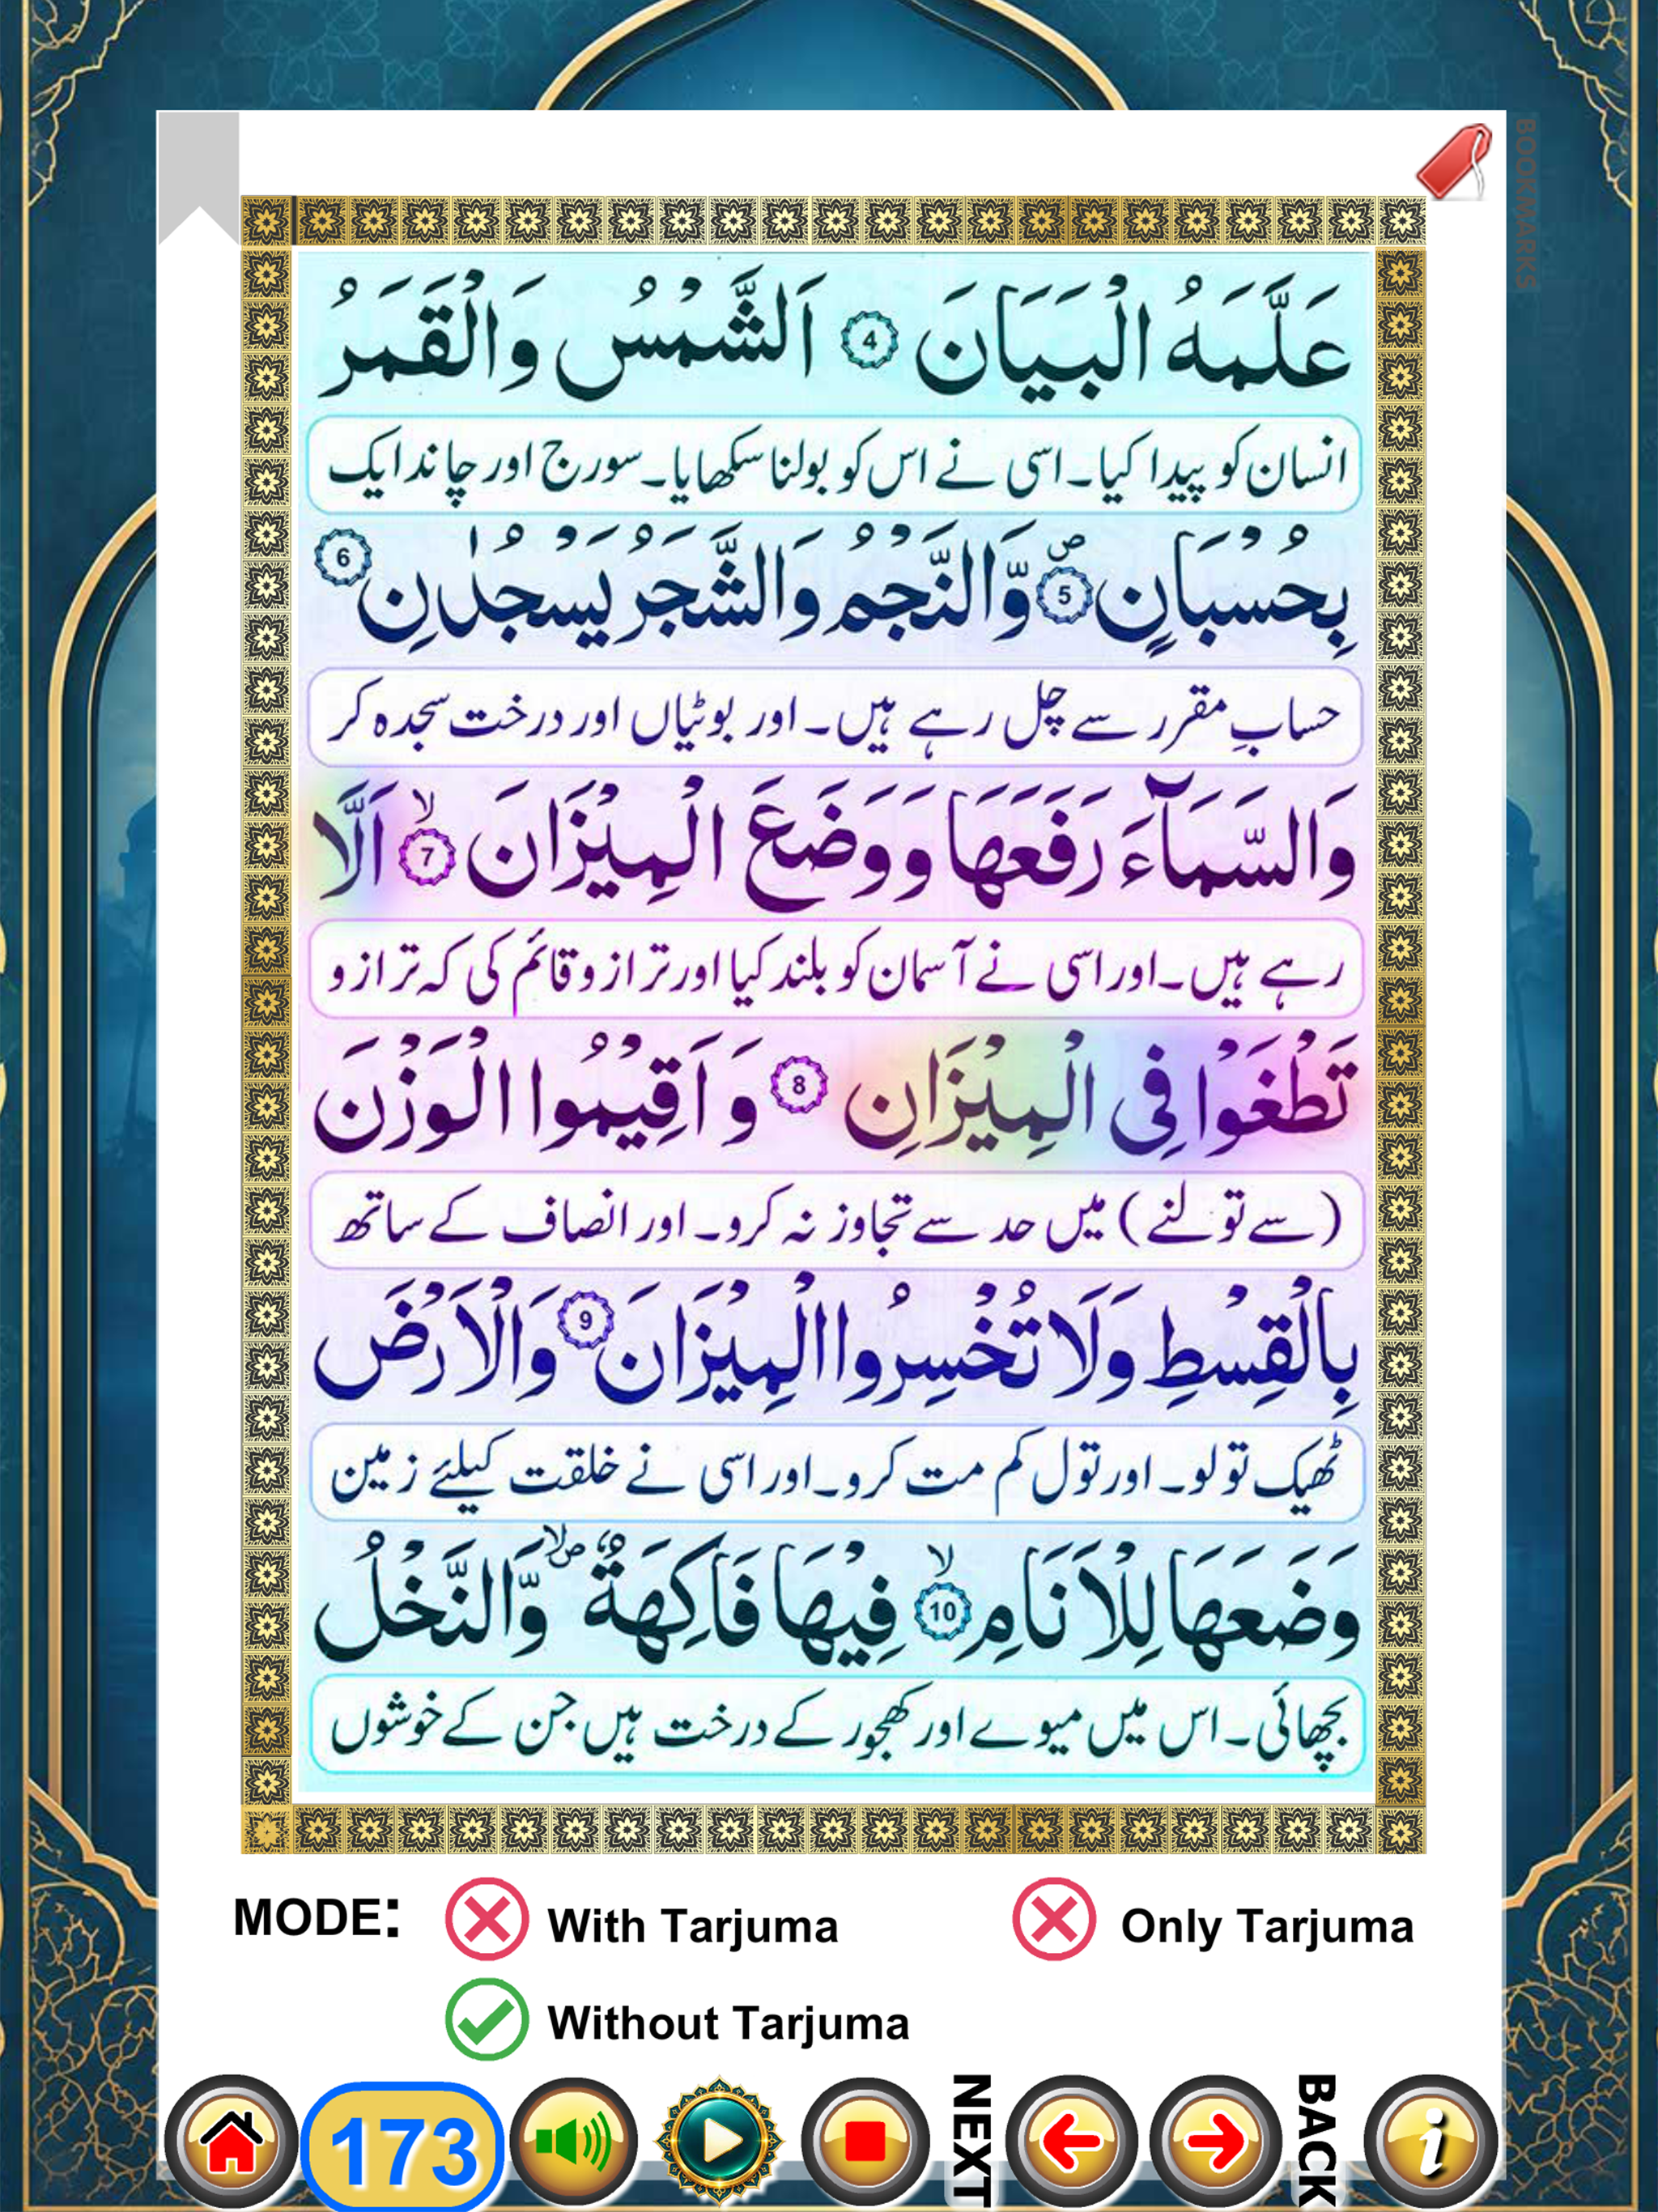 BOOKMARKS
عَلَّمَهُ الْبَيَانَ 4 اَلشَّمْسُ وَالْقَمَرُ
انسان کو پیدا کیا۔ اسی نے اس کو بولنا سکھایا۔ سورج اور چاند ایک
بِحُسْبَانٍ 5 ص وَّالنَّجْمُ وَالشَّجَرُ يَسْجُدٰنِ 6
حسابِ مقرر سے چل رہے ہیں۔ اور بوٹیاں اور درخت سجدہ کر
وَالسَّمَآءَ رَفَعَهَا وَوَضَعَ الْمِيْزَانَ 7 لا اَلَّا
رہے ہیں۔ اور اسی نے آسمان کو بلند کیا اور ترازو قائم کی کہ ترازو
تَطْغَوْا فِى الْمِيْزَانِ 8 وَاَقِيْمُوا الْوَزْنَ
(سے تولنے) میں حد سے تجاوز نہ کرو۔ اور انصاف کے ساتھ
بِالْقِسْطِ وَلَا تُخْسِرُوا الْمِيْزَانَ 9 وَالْاَرْضَ
ٹھیک تولو۔ اور تول کم مت کرو۔ اور اسی نے خلقت کیلئے زمین
وَضَعَهَا لِلْاَنَامِ 10 لا فِيْهَا فَاكِهَةٌ صلا وَّالنَّخْلُ
بچھائی۔ اس میں میوے اور کھجور کے درخت ہیں جن کے خوشوں
MODE: With Tarjuma Only Tarjuma
Without Tarjuma
173 NEXT BACK i